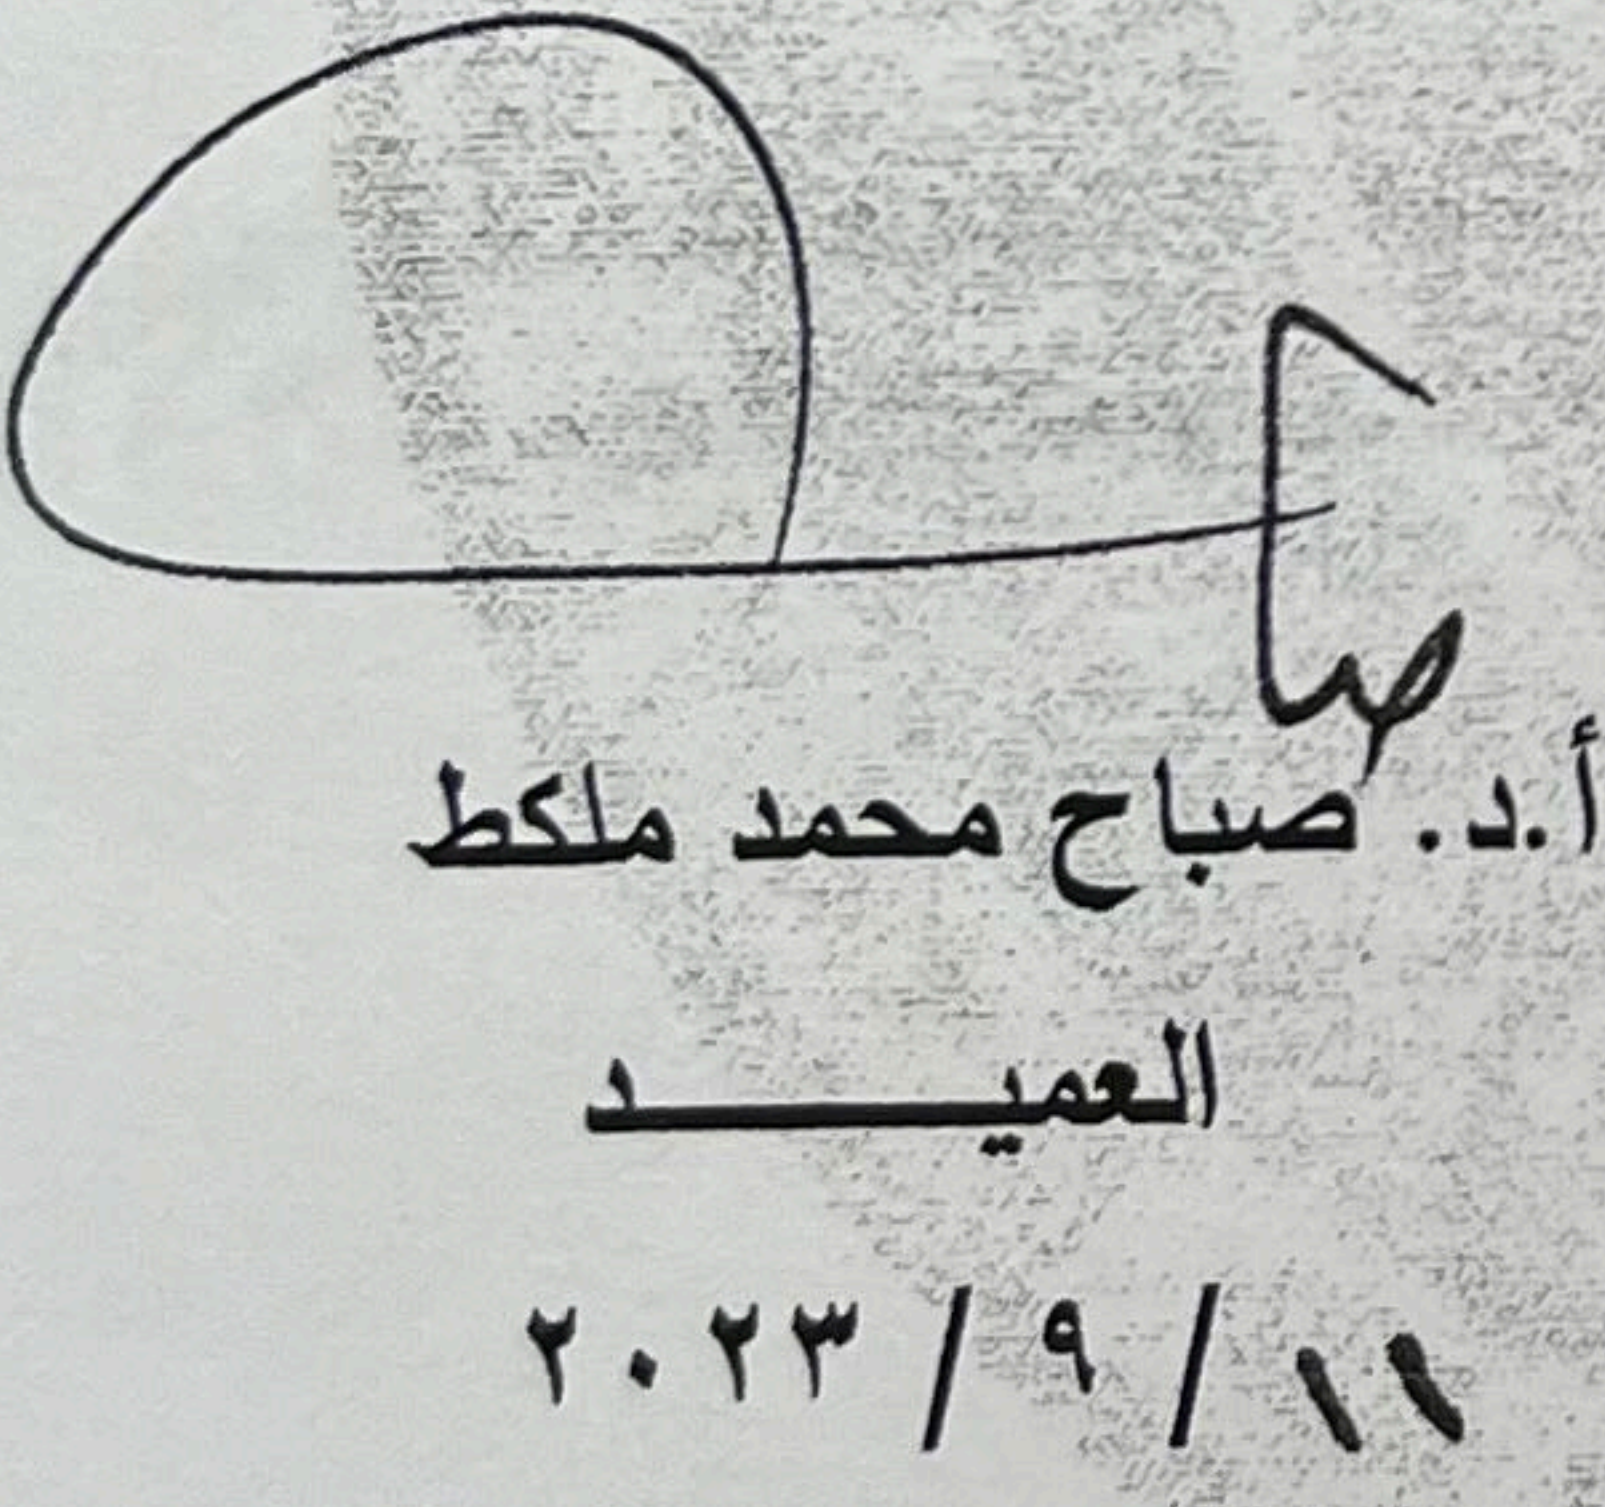 أ.د. صباح محمد ملكط
العميـــــد
١١ / ٩ / ٢٠٢٣